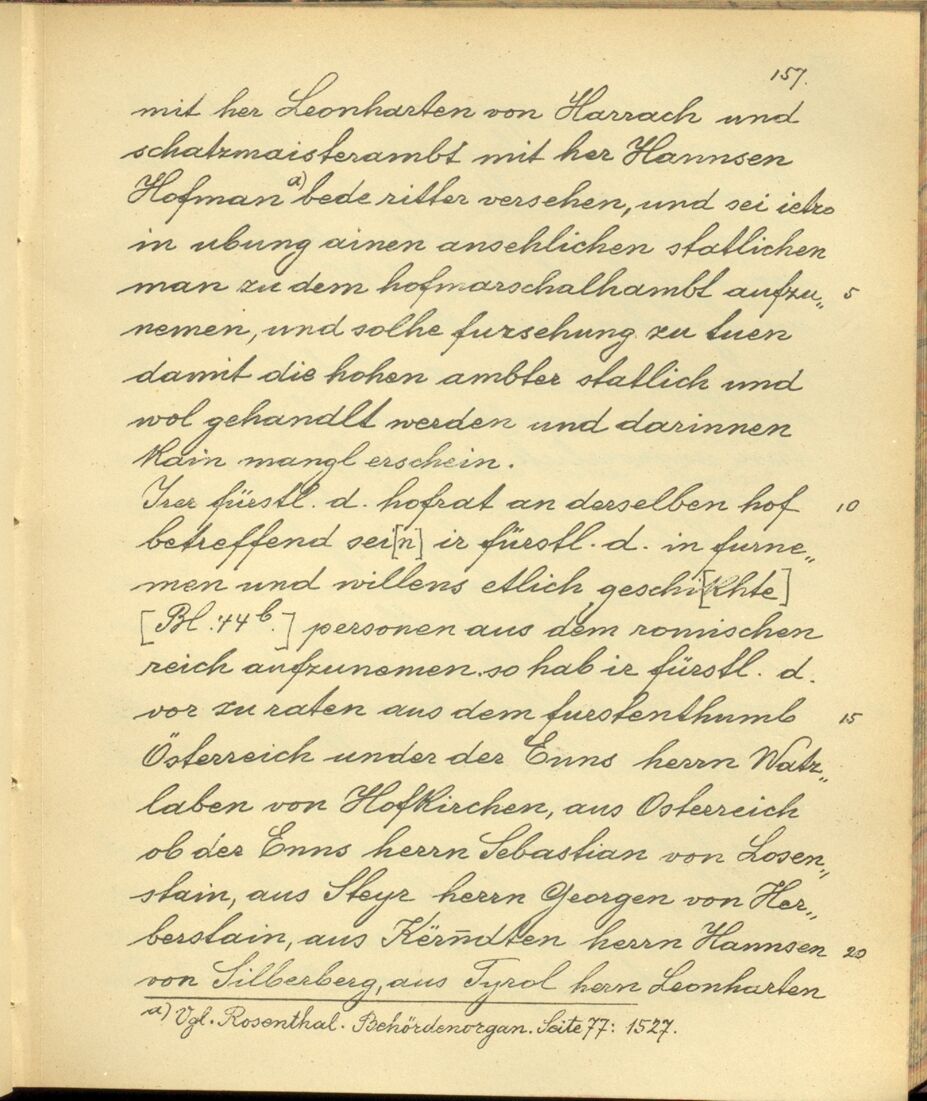 157.
mit her Leonharten von Harrach und
schatzmaisterambt mit her Hannsen
Hofman a) bede ritter versehen, und sei ietzo
in ubung ainen ansehlichen statlichen
man zu dem hofmarschalhambt aufzu„ 5
nemen, und solhe fursehung zu tuen
damit die hohen ambter statlich und
wol gehandlt werden und darinnen
kain mangl erschein.
Irer fürstl. d. hofrat an derselben hof 10
betreffend sei[n] ir fürstl. d. in furne„
men und willens etlich geschi[khte]
[Bl. 44 b.] personen aus dem romischen
reich aufzunemen. so hab ir fürstl. d.
vor zu raten aus dem furstenthumb 15
Österreich under der Enns herrn Watz„
laben von Hofkirchen, aus Osterreich
ob der Enns herrn Sebastian von Losen„
stain, aus Steyr herrn Georgen von Her„
berstain, aus Kërn̄dten herrn Hannsen 20
von Silberberg, aus Tyrol hern Leonharten
a) Vgl. Rosenthal. Behördenorgan. Seite 77: 1527.